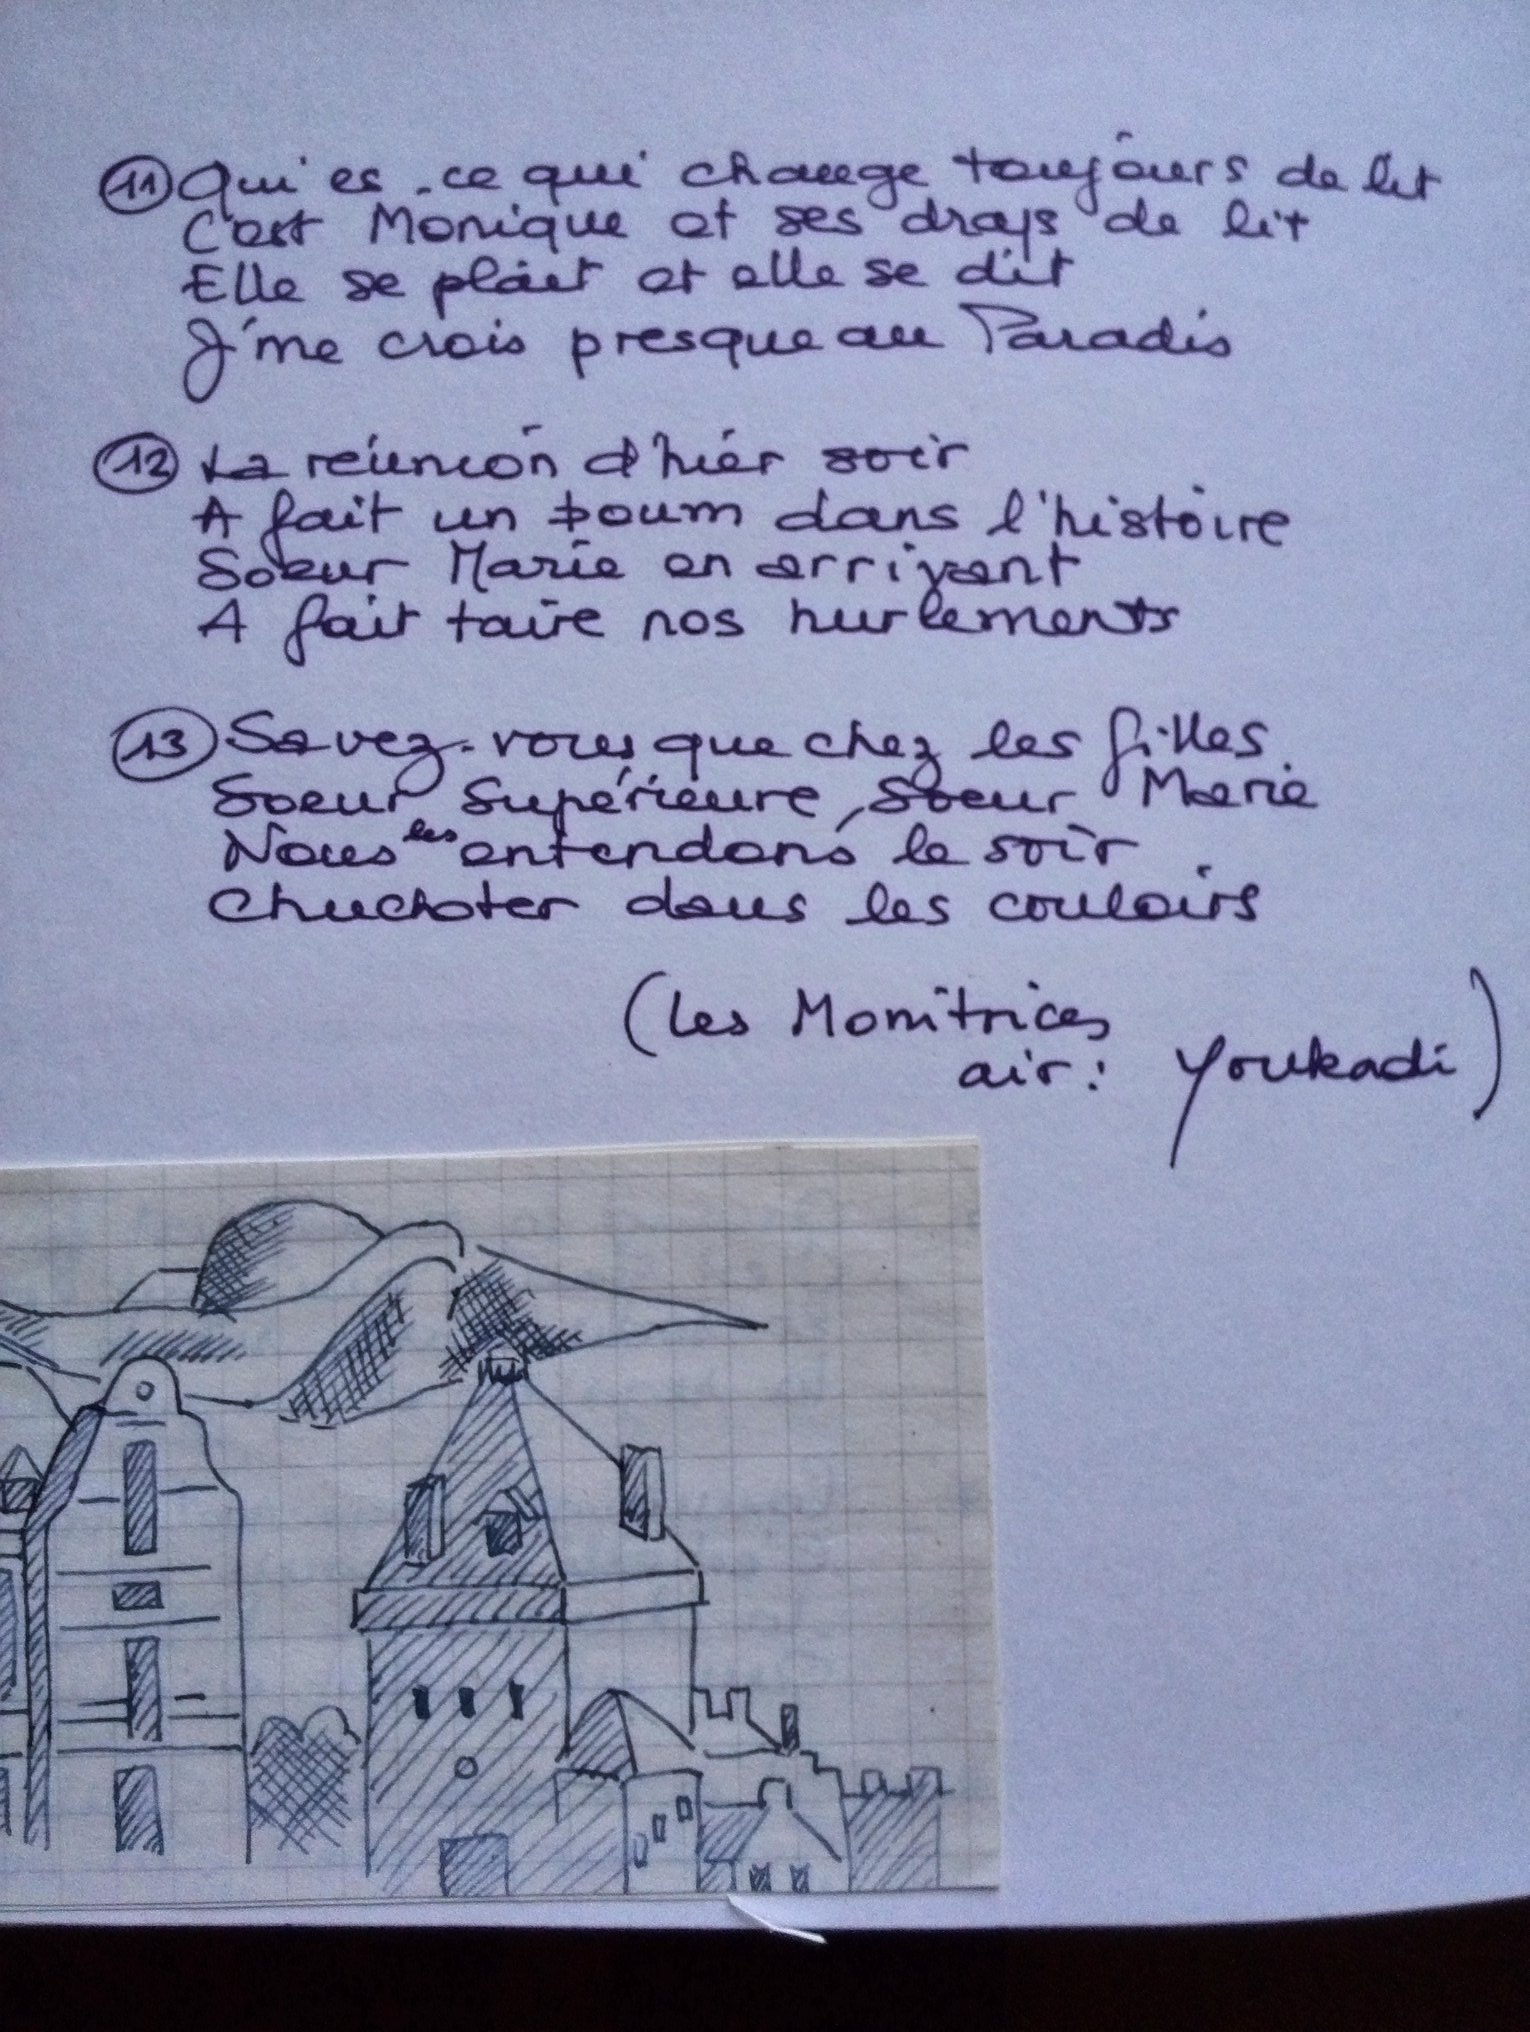 11 Qui es-ce qui change toujours de lit
C'est Monique et ses draps de lit
Elle se plaît et elle se dit
J'me crois presque au Paradis
12 La réunion d'hier soir
A fait un boum dans l'histoire
Soeur Marie en arrivant
A fait taire nos hurlements
13 Savez-vous que chez les filles
Soeur Supérieure, Soeur Marie
Nous les entendons le soir
Chuchoter dans les couloirs
(Les Monitrices
air: Youkadi)